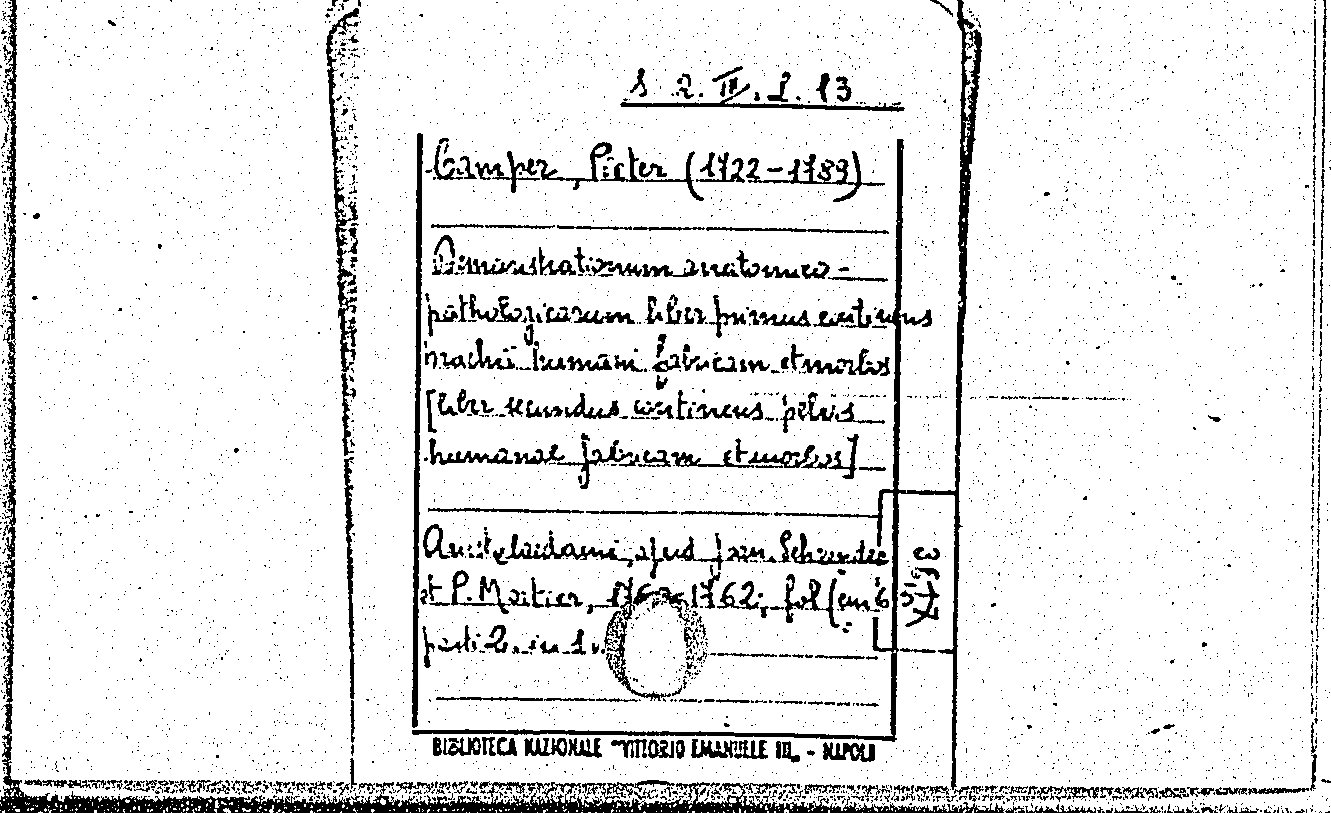 S 2. III. L. 13
Camper, Pieter (1722-1789)
Demonstrationum anatomico-
pathologicarum liber primus continens
brachii humani fabricam et morbos
[liber secundus continens pelvis
humanae fabricam et morbos]
Amstelaedami, apud Joan. Schreuder
et P. Mortier, 1760-1762; fol (cm
parti 2. in 1 v.
BIBLIOTECA NAZIONALE "VITTORIO EMANUELE III„ - NAPOLI